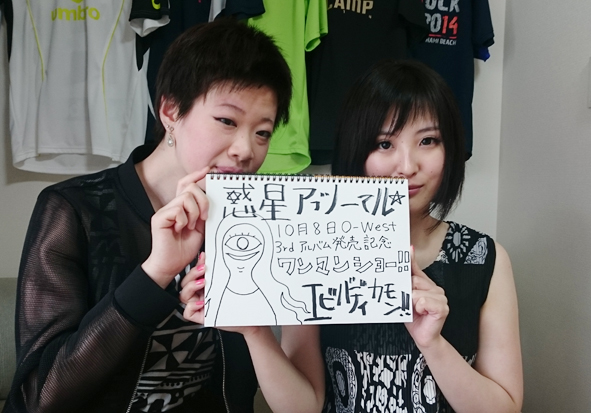 umbro
CAMP
ROCK
2014
MIAMI BEACH
惑星アブノーマル☆
10月8日O-West
3rdアルバム発売記念
ワンマンショー!!
エビバディカモン!!